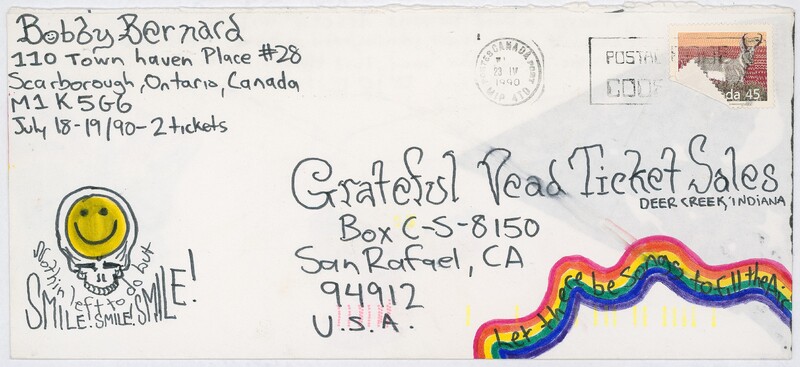 Bobby Bernard
110 Town haven Place #28
Scarborough, Ontario, Canada
M1K5G6
July 18-19/90-2 tickets
CANADA
23 IV
1990
POSTAL
CODE
da 45
Grateful Dead Ticket Sales
DEER CREEK, INDIANA
Box C-S-8150
San Rafael, CA
94912
U.S.A.
Nothin left to do but
SMILE! SMILE! SMILE!
Let there be songs to fill the Air